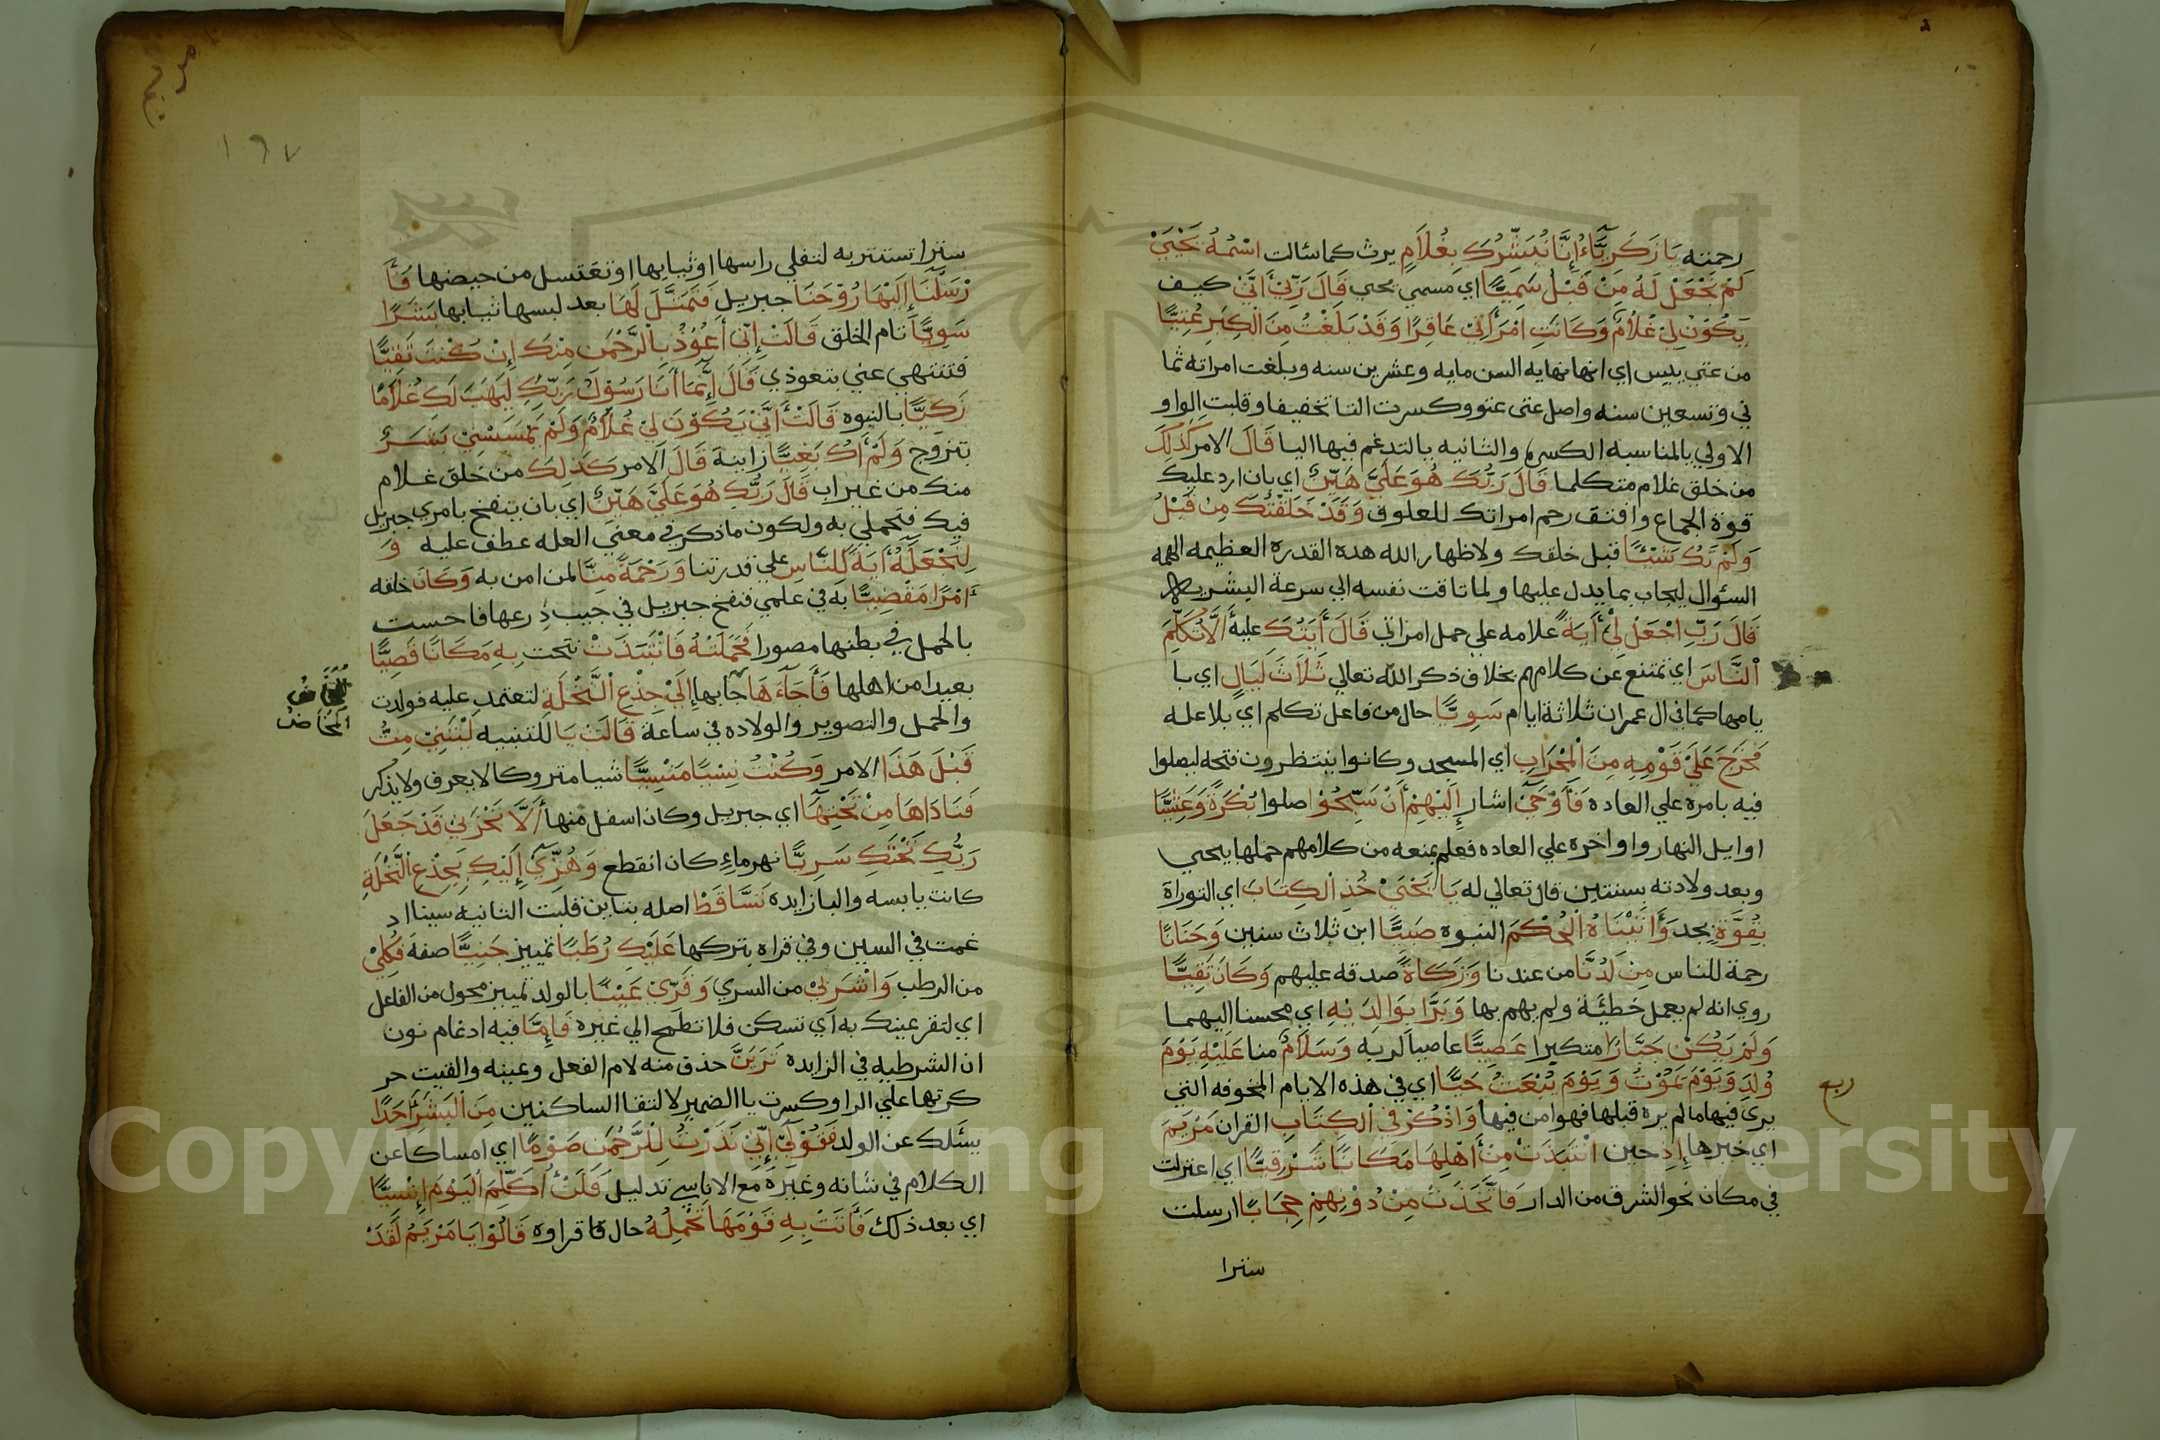 رحمته يَا زَكَرِيَّاءُ إِنَّا نُبَشِّرُكَ بِغُلَامٍ يرث كما سالت اسْمُهُ يَحْيَىٰ
لَمْ نَجْعَلْ لَهُ مِنْ قَبْلُ سَمِيًّا اي مسمي بحي قَالَ رَبِّ أَنَّىٰ كيف
يَكُوْنُ لِيْ غُلَامٌ وَكَانَتِ امْرَأَتِيْ عَاقِرًا وَقَدْ بَلَغْتُ مِنَ الْكِبَرِ عُتِيًّا
من عتي يبس اي انها نهايه السن مايه وعشرين سنه وبلغت امراته ثما
ني وتسعين سنه واصل عتى عتوو وكسرت التا تخفيفا وقلبت الواو
الاولي بالمناسبه الكسره والثانيه يا لتدغم فيها اليا قَالَ الامر كَذٰلِكَ
من خلق غلام متكلما قَالَ رَبُّكَ هُوَ عَلَيَّ هَيِّنٌ اي بان ارد عليك
قوة الجماع وافتق رحم امراتك للعلوق وَقَدْ خَلَقْتُكَ مِنْ قَبْلُ
وَلَمْ تَكُ شَيْئًا قبل خلقك ولاظهار الله هذه القدره العظيمه الهمه
السؤال ليجاب بما يدل عليها ولما تاقت نفسه الي سرعة البشربه
قَالَ رَبِّ اجْعَلْ لِيْ أَيَةً علامه علي حمل امراتي قَالَ أَيَتُكَ عليه أَلَّا تُكَلِّمَ
اْلنَّاسَ اي تمتنع عن كلامهم بخلاف ذكر الله تعالي ثَلَاثَ لَيَالٍ اي با
يامها كما في ال عمران ثلاثة ايام سَوِيًّا حال من فاعل تكلم اي بلا عله
فَخَرَجَ عَلَىٰ قَوْمِهِ مِنَ الْمِحْرَابِ اي المسجد وكانوا ينتظرون فتحه ليصلوا
فيه بامره علي العاده فَأَوْحَىٰ اشار إِلَيْهِمْ أَنْ سَبِّحُوْا صلوا بُكْرَةً وَعَشِيًّا
اوايل النهار واواخره علي العاده فعلم بمنعه من كلامهم حملها بيحيي
وبعد ولادته بسنتين قال تعالي له يَا يَحْيَىٰ خُذِ اْلكِتَابَ اي التوراة
بِقُوَّةٍ بجد وَأَتَيْنَاهُ الْحُكْمَ النبوه صَبِيًّا ابن ثلاث سنين وَحَنَانًا
رحمة للناس مِنْ لَدُنَّا من عندنا وَزَكَاةً صدقه عليهم وَكَانَ تَقِيًّا
روي انه لم يعمل خطيئة ولم يهم بها وَبَرًّا بِوَالِدَيْهِ اي محسنا اليهما
وَلَمْ يَكُنْ جَبَّارًا متكبرا عَصِيًّا عاصيا لربه وَسَلَامٌ منا عَلَيْهِ يَوْمَ
وُلِدَ وَيَوْمَ يَمُوْتُ وَيَوْمَ يُبْعَثُ حَيًّا اي في هذه الايام المخوفه التي
ربع
يرى فيها ما لم يره قبلها فهو امن فيها وَاذْكُرْ فِي الْكِتَابِ القران مَرْيَمَ
اي خبرها إِذِ حين انْتَبَذَتْ مِنْ أَهْلِهَا مَكَانًا شَرْقِيًّا اي اعتزلت
في مكان نحو الشرق من الدار فَاتَّخَذَتْ مِنْ دُوْنِهِمْ حِجَابًا ارسلت
سترا
مريم
١٦٧
سترا تستتر به لتفلي راسها او ثيابها او تغتسل من حيضها فَأَ
رْسَلْنَا إِلَيْهَا رُوْحَنَا جبريل فَتَمَثَّلَ لَهَا بعد لبسها ثيابها بَشَرًا
سَوِيًّا تام الخلق قَالَتْ إِنِّيْ أَعُوْذُ بِالرَّحْمٰنِ مِنْكَ إِنْ كُنْتَ تَقِيًّا
فتنتهي عني بتعوذي قَالَ إِنَّمَا أَنَا رَسُوْلُ رَبِّكِ لِيَهَبَ لَكِ غُلَامًا
زَكِيًّا بالنبوه قَالَتْ أَنَّىٰ يَكُوْنَ لِيْ غُلَامٌ وَلَمْ يَمْسَسْنِيْ بَشَرٌ
بتزوج وَلَمْ أَكُ بَغِيًّا زانية قَالَ الامر كَذٰلِكِ من خلق غلام
منك من غير اب قَالَ رَبُّكِ هُوَ عَلَيَّ هَيِّنٌ اي بان ينفخ بامري جبريل
فيك فتحملي به ولكون ما ذكر في معني العله عطف عليه وَ
لِنَجْعَلَهُ أَيَةً لِلنَّاسِ علي قدرتنا وَرَحْمَةً مِنَّا لمن امن به وَكَانَ خلقه
أَمْرًا مَقْضِيًّا به في علمي فنفخ جبريل في جيب درعها فاحست
بالحمل في بطنها مصورا فَحَمَلَتْهُ فَانْتَبَذَتْ تنحت بِهِ مَكَانًا قَصِيًّا
بعيدا من اهلها فَأَجَاءَهَا جا بها إِلَىٰ جِذْعِ النَّخْلَةِ لتعتمد عليه فولدت
المخاض
والحمل والتصوير والولاده في ساعة قَالَتْ يَا للتنبيه لَيْتَنِيْ مِتُّ
قَبْلَ هٰذَا الامر وَكُنْتُ نِسْيًا مَنْسِيًّا شيا متروكا لا يعرف ولا يذكر
فَنَادَاهَا مِنْ تَحْتِهَا اي جبريل وكان اسفل منها أَلَّا تَحْزَنِي قَدْ جَعَلَ
رَبُّكِ تَحْتَكِ سَرِيًّا نهر ماء كان انقطع وَهُزِّيْ إِلَيْكِ بِجِذْعِ النَّخْلَةِ
كانت يابسه والبا زايده تَسَّاقَطْ اصله بتاين قلبت الثانيه سينا اد
غمت في السين وفي قراه بتركها عَلَيْكِ رُطَبًا تمييز جَنِيًّا صفة فَكُلِيْ
من الرطب وَاشْرَبِيْ من السري وَقَرِّيْ عَيْنًا بالولد تمييز محول من الفاعل
اي لتقر عينك به اي تسكن فلا تطمح الي غيره فَإِمَّا فيه ادغام نون
ان الشرطيه في الزايده تَرَيِنَّ حذف منه لام الفعل وعينه والقيت حر
كرتها علي الرا وكسرت يا الضمير لالتقا الساكنين مِنَ الْبَشَرِ أَحَدًا
يسئلك عن الولد فَقُوْلِيْ إِنِّيْ نَذَرْتُ لِلرَّحْمٰنِ صَوْمًا اي امساكا عن
الكلام في شانه وغيره مع الاناسي بدليل فَلَنْ أُكَلِّمَ الْيَوْمَ إِنْسِيًّا
اي بعد ذلك فَأَتَتْ بِهِ قَوْمَهَا تَحْمِلُهُ حال فا قراوه قَالُوْا يَا مَرْيَمُ لَقَدْ